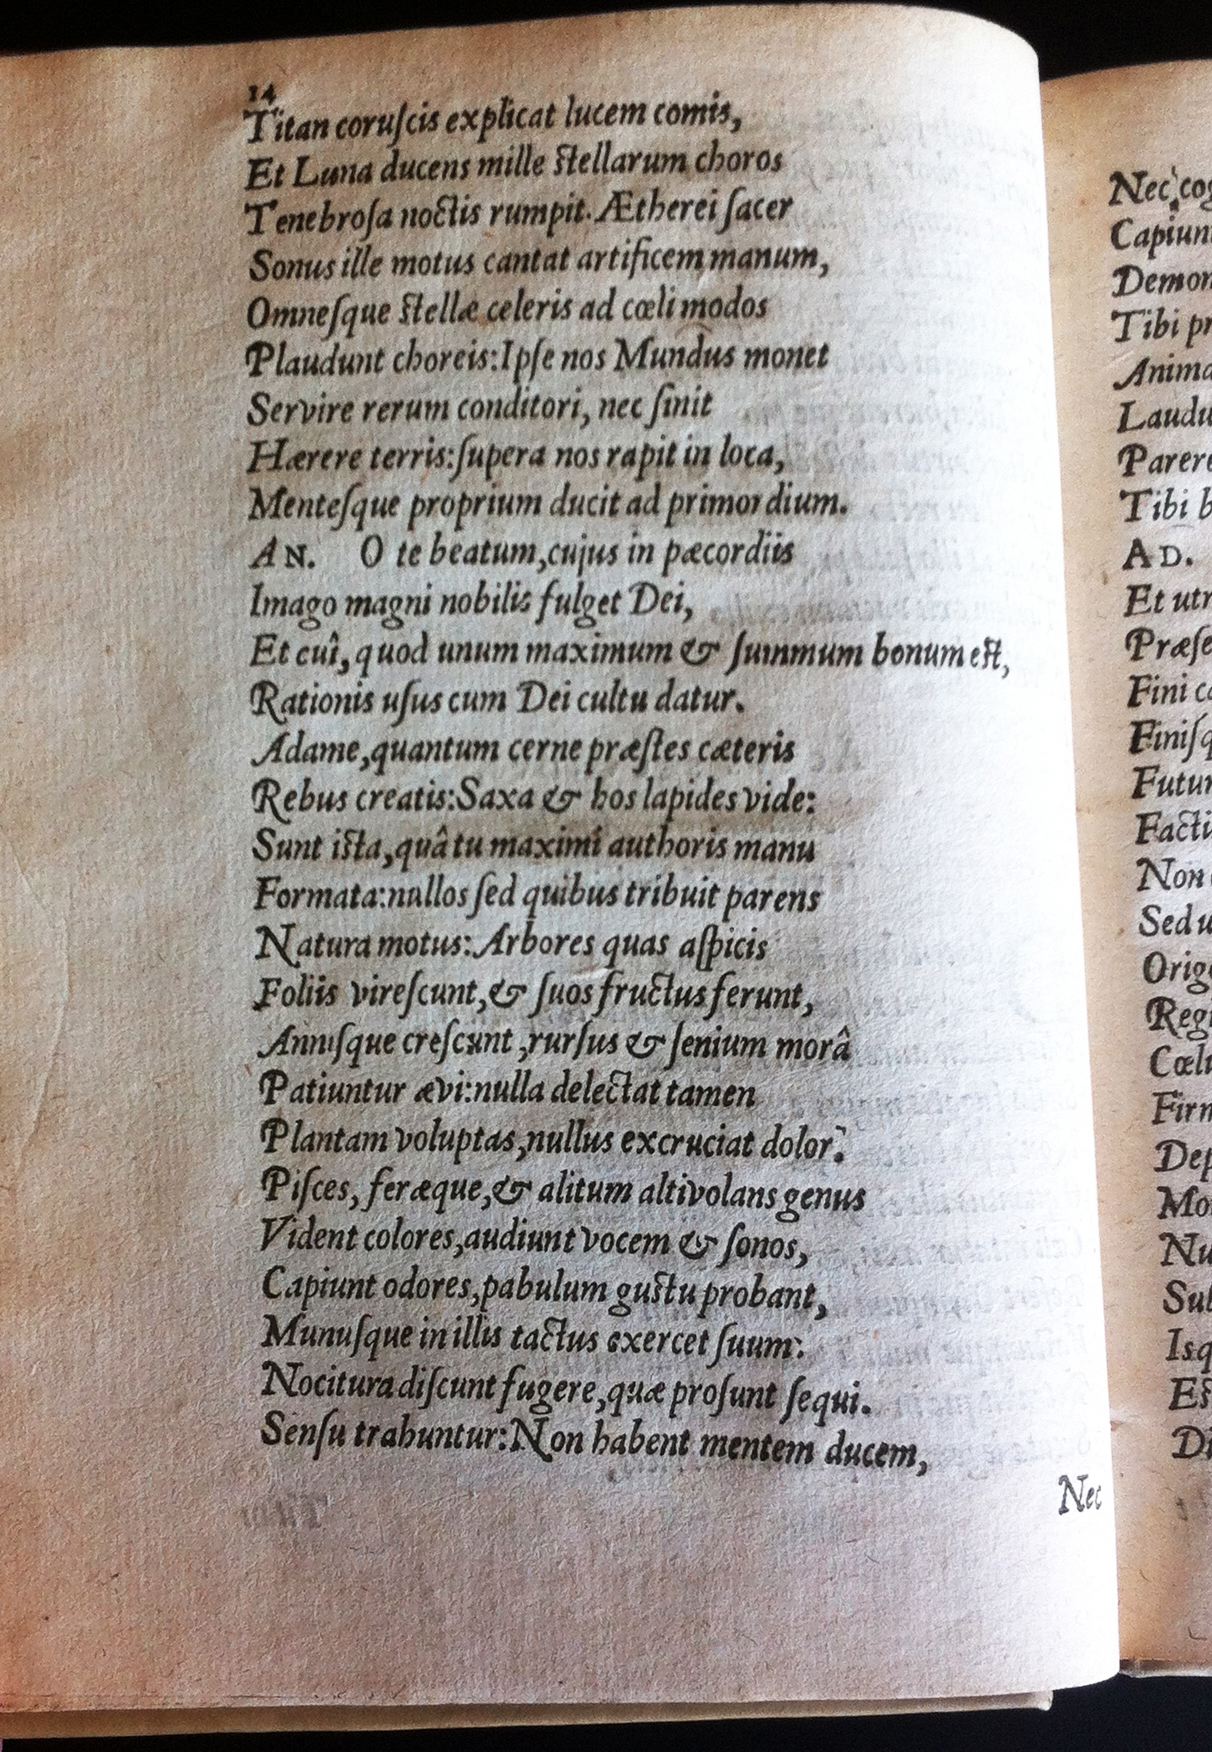 14
Titan coruſcis explicat lucem comis,
Et Luna ducens mille ſtellarum choros
Tenebroſa noctis rumpit. Ætherei ſacer
Sonus ille motus cantat artificem manum,
Omneſque ſtellæ celeris ad cœli modos
Plaudunt choreis: Ipſe nos Mundus monet
Servire rerum conditori, nec ſinit
Hærere terris: ſupera nos rapit in loca,
Menteſque proprium ducit ad primordium.
AN. O te beatum, cujus in pæcordiis
Imago magni nobilis fulget Dei,
Et cuî, quod unum maximum & ſummum bonum eſt,
Rationis uſus cum Dei cultu datur.
Adame, quantum cerne præſtes cæteris
Rebus creatis: Saxa & hos lapides vide:
Sunt iſta, quâ tu maximi authoris manu
Formata: nullos ſed quibus tribuit parens
Natura motus: Arbores quas aſpicis
Foliis vireſcunt, & ſuos fructus ferunt,
Anniſque creſcunt, rurſus & ſenium morâ
Patiuntur ævi: nulla delectat tamen
Plantam voluptas, nullus excruciat dolor.
Piſces, feræque, & alitum altivolans genus
Vident colores, audiunt vocem & ſonos,
Capiunt odores, pabulum guſtu probant,
Munuſque in illis tactus exercet ſuum:
Nocitura diſcunt fugere, quæ proſunt ſequi.
Senſu trahuntur: Non habent mentem ducem,
Nec
Nec cog
Capiun
Demon
Tibi pr
Anima
Laudu
Parere
Tibi b
AD.
Et utr
Præſe
Fini c
Finiſq
Futur
Facti
Non
Sed u
Orig
Regi
Cœlu
Firm
Dep
Mo
Nu
Sul
Isq
Eſ
Di